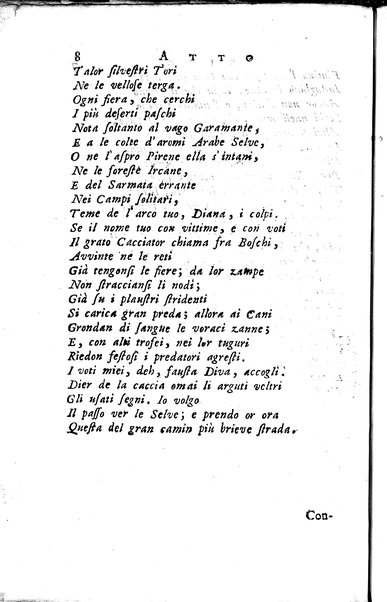 8 ATTO
Talor ſilveſtri Tori
Ne le velloſe terga.
Ogni fiera, che cerchi
I più deſerti paſchi
Nota ſoltanto al vago Garamante,
E a le colte d'aromi Arabe Selve,
O ne l'aſpro Pirene ella s'intani,
Ne le foreſtè Ircane,
E del Sarmata errante
Nei Campi ſolitarj,
Teme de l'arco tuo, Diana, i colpi.
Se il nume tuo con vittime, e con voti
Il grato Cacciator chiama fra Boſchi,
Avvinte ne le reti
Già tengonſi le fiere; da lor zampe
Non ſtraccianſi li nodi;
Già ſu i plauſtri ſtridenti
Si carica gran preda; allora ai Cani
Grondan di ſangue le voraci zanne;
E, con alti trofei, nei lor tuguri
Riedon feſtoſi i predatori agreſti.
I voti miei, deh, fauſta Diva, accogli.
Dier de la caccia omai li arguti veltri
Gli uſati ſegni. Io volgo
Il paſſo ver le Selve; e prendo or ora
Queſta del gran camin più brieve ſtrada.
Con-